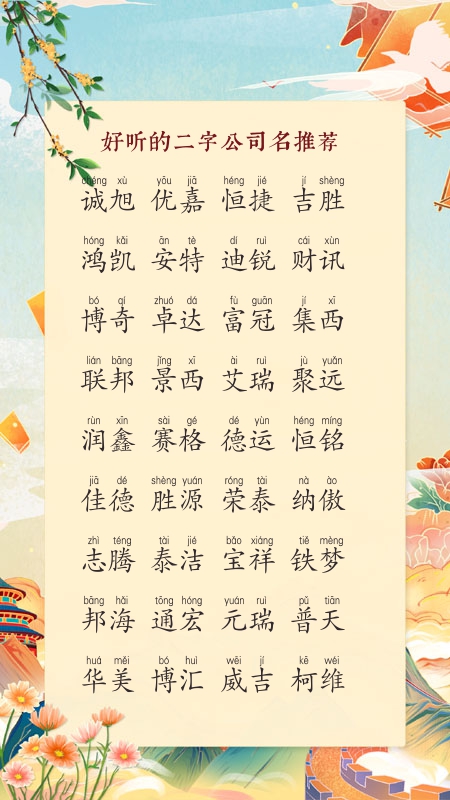 好听的二字公司名推荐
chéng xù yōu jiā héng jié jí shèng
诚旭 优嘉 恒捷 吉胜
hóng kǎi ān tè dí ruì cái xùn
鸿凯 安特 迪锐 财讯
bó qí zhuó dá fù guān jí xī
博奇 卓达 富冠 集西
lián bāng jǐng xī ài ruì jù yuǎn
联邦 景西 艾瑞 聚远
rùn xīn sài gé dé yùn héng míng
润鑫 赛格 德运 恒铭
jiā dé shèng yuán róng tài nà ào
佳德 胜源 荣泰 纳傲
zhì téng tài jié bǎo xiáng tiě mèng
志腾 泰洁 宝祥 铁梦
bāng hǎi tōng hóng yuán ruì pǔ tiān
邦海 通宏 元瑞 普天
huá měi bó huì wēi jí kē wéi
华美 博汇 威吉 柯维